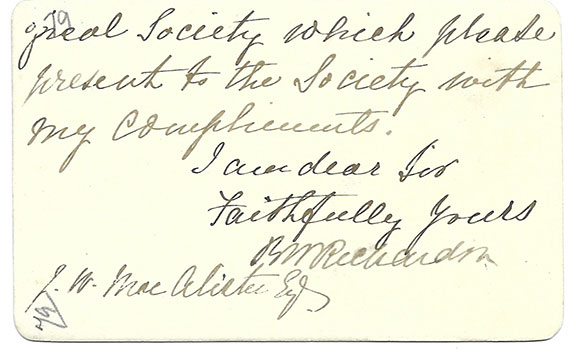 79
great Society which please
present to the Society with
my compliments.
I am dear Sir
Faithfully Yours
B W Richardson
J. W. Mac Alister Esq